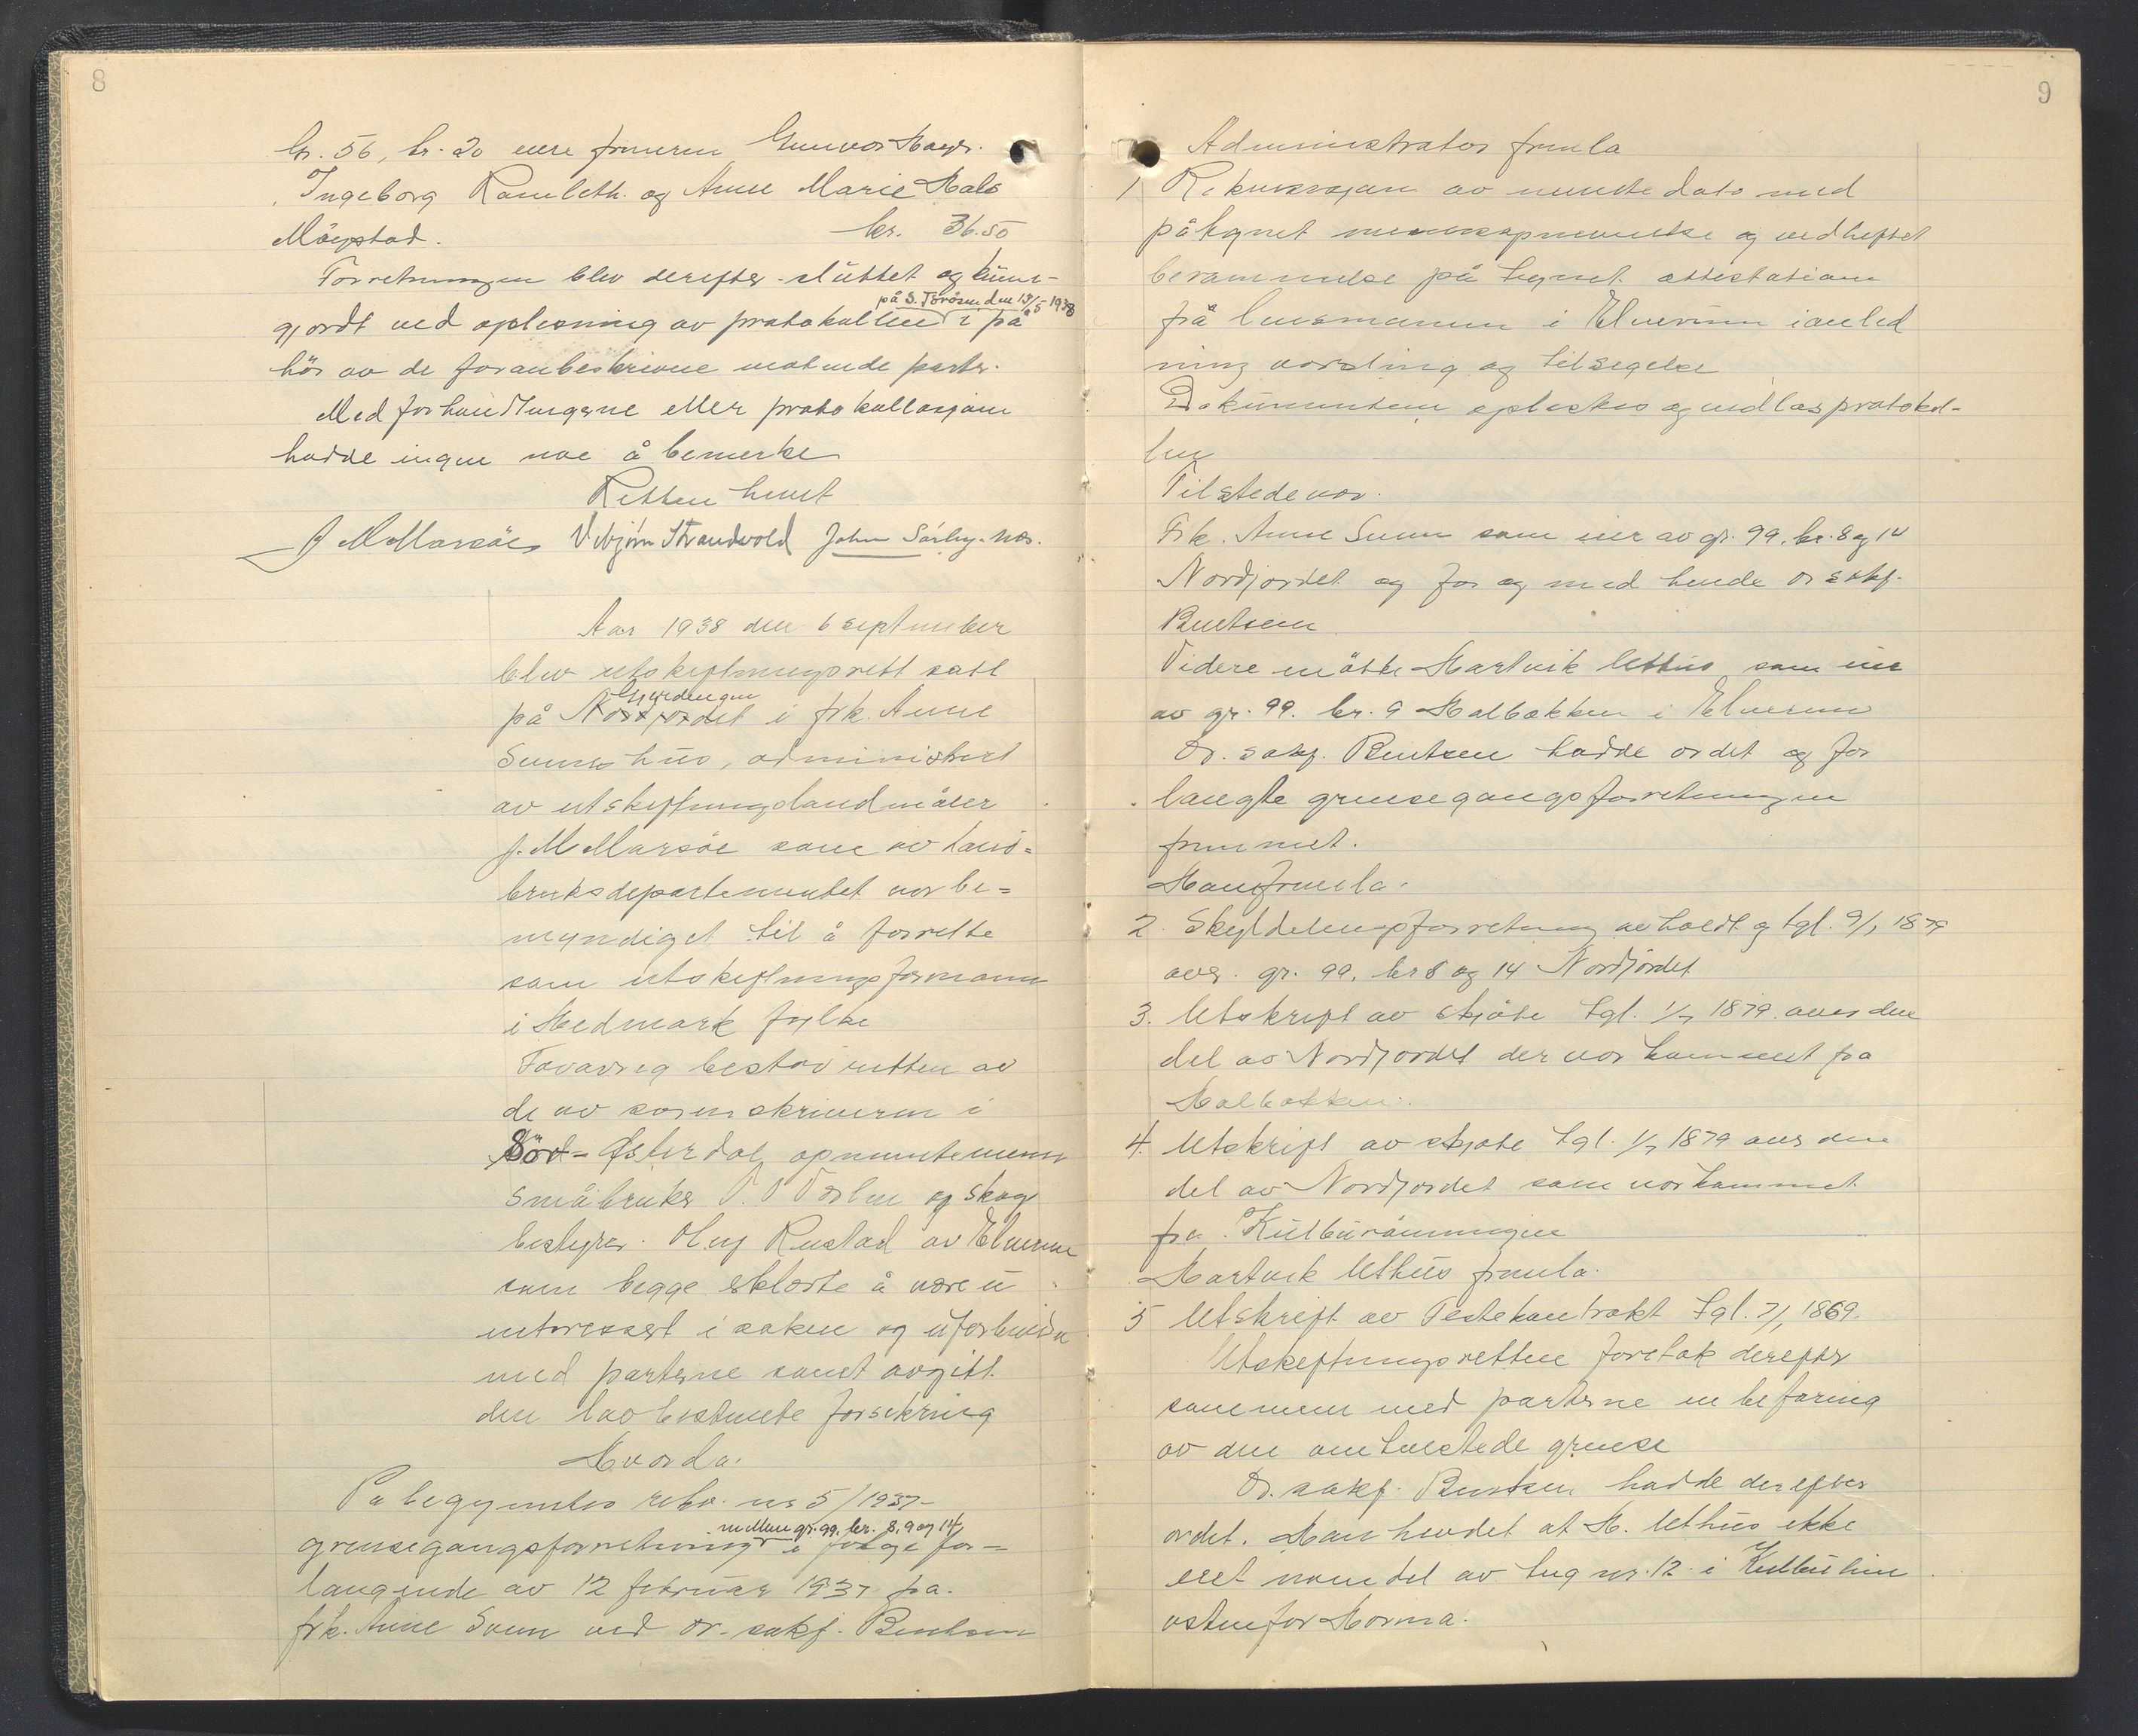 8
br. 56, br. 20 eiere fruerne Gunvor Hager.
Ingeborg Ramleth. og Anne Marie Hals
Möystad. kr. 36.50
Forretningen blev derefter sluttet og kunn-
på S. Töråsen den 13/5 1938
gjordt ved oplesning av protokollen i på
hör av de foranbeskrevne møtende parter.
Med forhandlingerne eller protokollasjonen
hadde ingen noe å bemerke
Retten hevet
J. M. Marsöe Vebjörn Strandvold John Sørby. nes.
Aar 1938 den 6 september
blev utskiftningsrett satt
Gjerdengen
på Nordjordet i frk. Anne
Sunns hus, administrert
av utskiftningslandmåler
J. M Marsöe som av Land-
bruksdepartementet var be-
myndiget til å forrette
som utskiftningsformann
i Hedmark fylke
Forøvrig bestod retten av
de av sorenskriveren i
Sör-Østerdal opnevnte menn
småbruker O. O og skog
bestyrer Rustad av Elverum
som begge erklærte å være u
interessert i saken og uforbundne
med parterne samt avgitt
den lovbestemte forsikring
Hvorda:
Påbegyntes rekv. nr 5/1937-
mellem gr. 99. br. 8, 9 og 14
grensegangsforretning i følge for-
langende av 12 februar 1937 fra
frk. Anne Sunn ved or. sakf. Bentsen
9
Administrator fremla
1 Rekvisisjon av nevnte dato med
påtegnet mennsopnevnelse og vedheftet
berammelse påtegnet attestasjon
frå lensmannen i Elverum i anled
ning varsling og tilsigelse
Dokumentene oplestes og vedlas protokol-
len
Tilstede var.
Frk. Anne Sunn som eier av gr. 99, br. 8 og 14
Nordjordet og for og med hende or. sakf.
Bentsen
Videre møtte Hartvik Uthus som eier
av gr. 99. br. 9 Halbakken i Elverum
Or. sakf. Bentsen hadde ordet og for
langte grensegangsforretningen
fremmet.
Han fremla.
2. Skylddelingsforretning avholdt og tgl. 9/1 1879
over. gr. 99, br 8 og 14 Nordjordet
3. Utskrift av skjöte tgl. 1/7 1879 over den
del av Nordjordet der var kommet fra
Halbakken.
4. Utskrift av skjøte tgl. 1/7 1879 over den
del av Nordjordet som var kommet
fra Kulburönningen
Hartvik Uthus fremla.
5 Utskrift av Festekontrakt tgl. 7/1 1869.
Utskiftningsretten foretok derefter
sammen med parterne en befaring
av den omtvistede grense
Or. sakf. Bentsen hadde derefter
ordet. Han hevdet at H. Uthus ikke
eiet noen del av teig nr. 12 i
østenfor Horma.